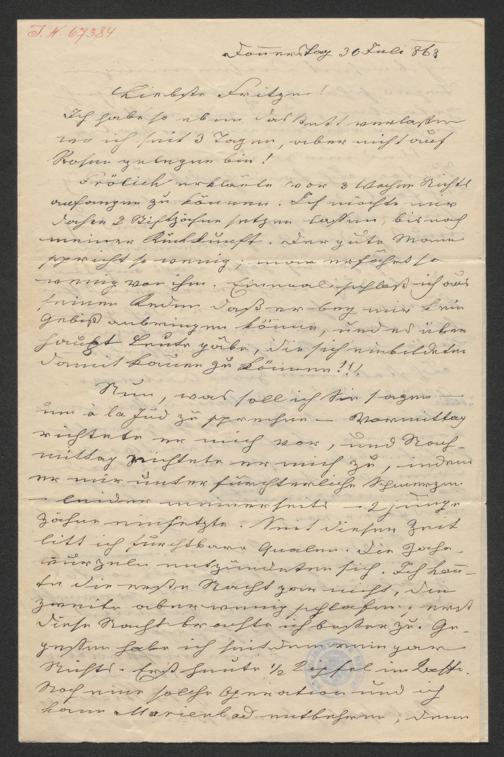 I. N. 67384
Donnerstag 30 Juli 863
Liebste Fritze!
Ich habe so eben das Bett verlassen
wo ich seit 3 Tagen, aber nicht auf
Rosen gelegen bin!
Frölich erklärte vor 3 Wochen Nichts
anfangen zu können. Ich möchte mir
daher 2 Stiftzähne setzen lassen, bis nach
meiner Rückkunft. Der gute Mann
spricht so wenig; man erfährt so
wenig von ihm. Einmal schloß ich aus
seinen Reden daß er bey mir kein
Gebiß anbringen könne, und es über
haupt Leute gäbe, die sich einbildeten
damit kauen zu können!!!
Nun, was soll ich Dir sagen —
um à la Jud zu sprechen — Vormittag
richtete er mich vor, und Nach-
mittag richtete er mich zu, indem
er mir unter fürchterliche Schmerzen
— leider meinerseits — 2 junge
Zähne einsetzte. Seit dieser Zeit
litt ich furchtbare Qualen. Die Zahn-
wurzeln entzündeten sich. Ich konn-
te die erste Nacht gar nicht, die
zweite aber wenig schlafen; erst
diese Nacht brachte ich besser zu. Ge-
gessen habe ich seitdem rein gar
Nichts. Erst heute ½ Zipfel in Kaffe.
Noch eine solche Operation und ich
kann Marienbad entbehren, denn